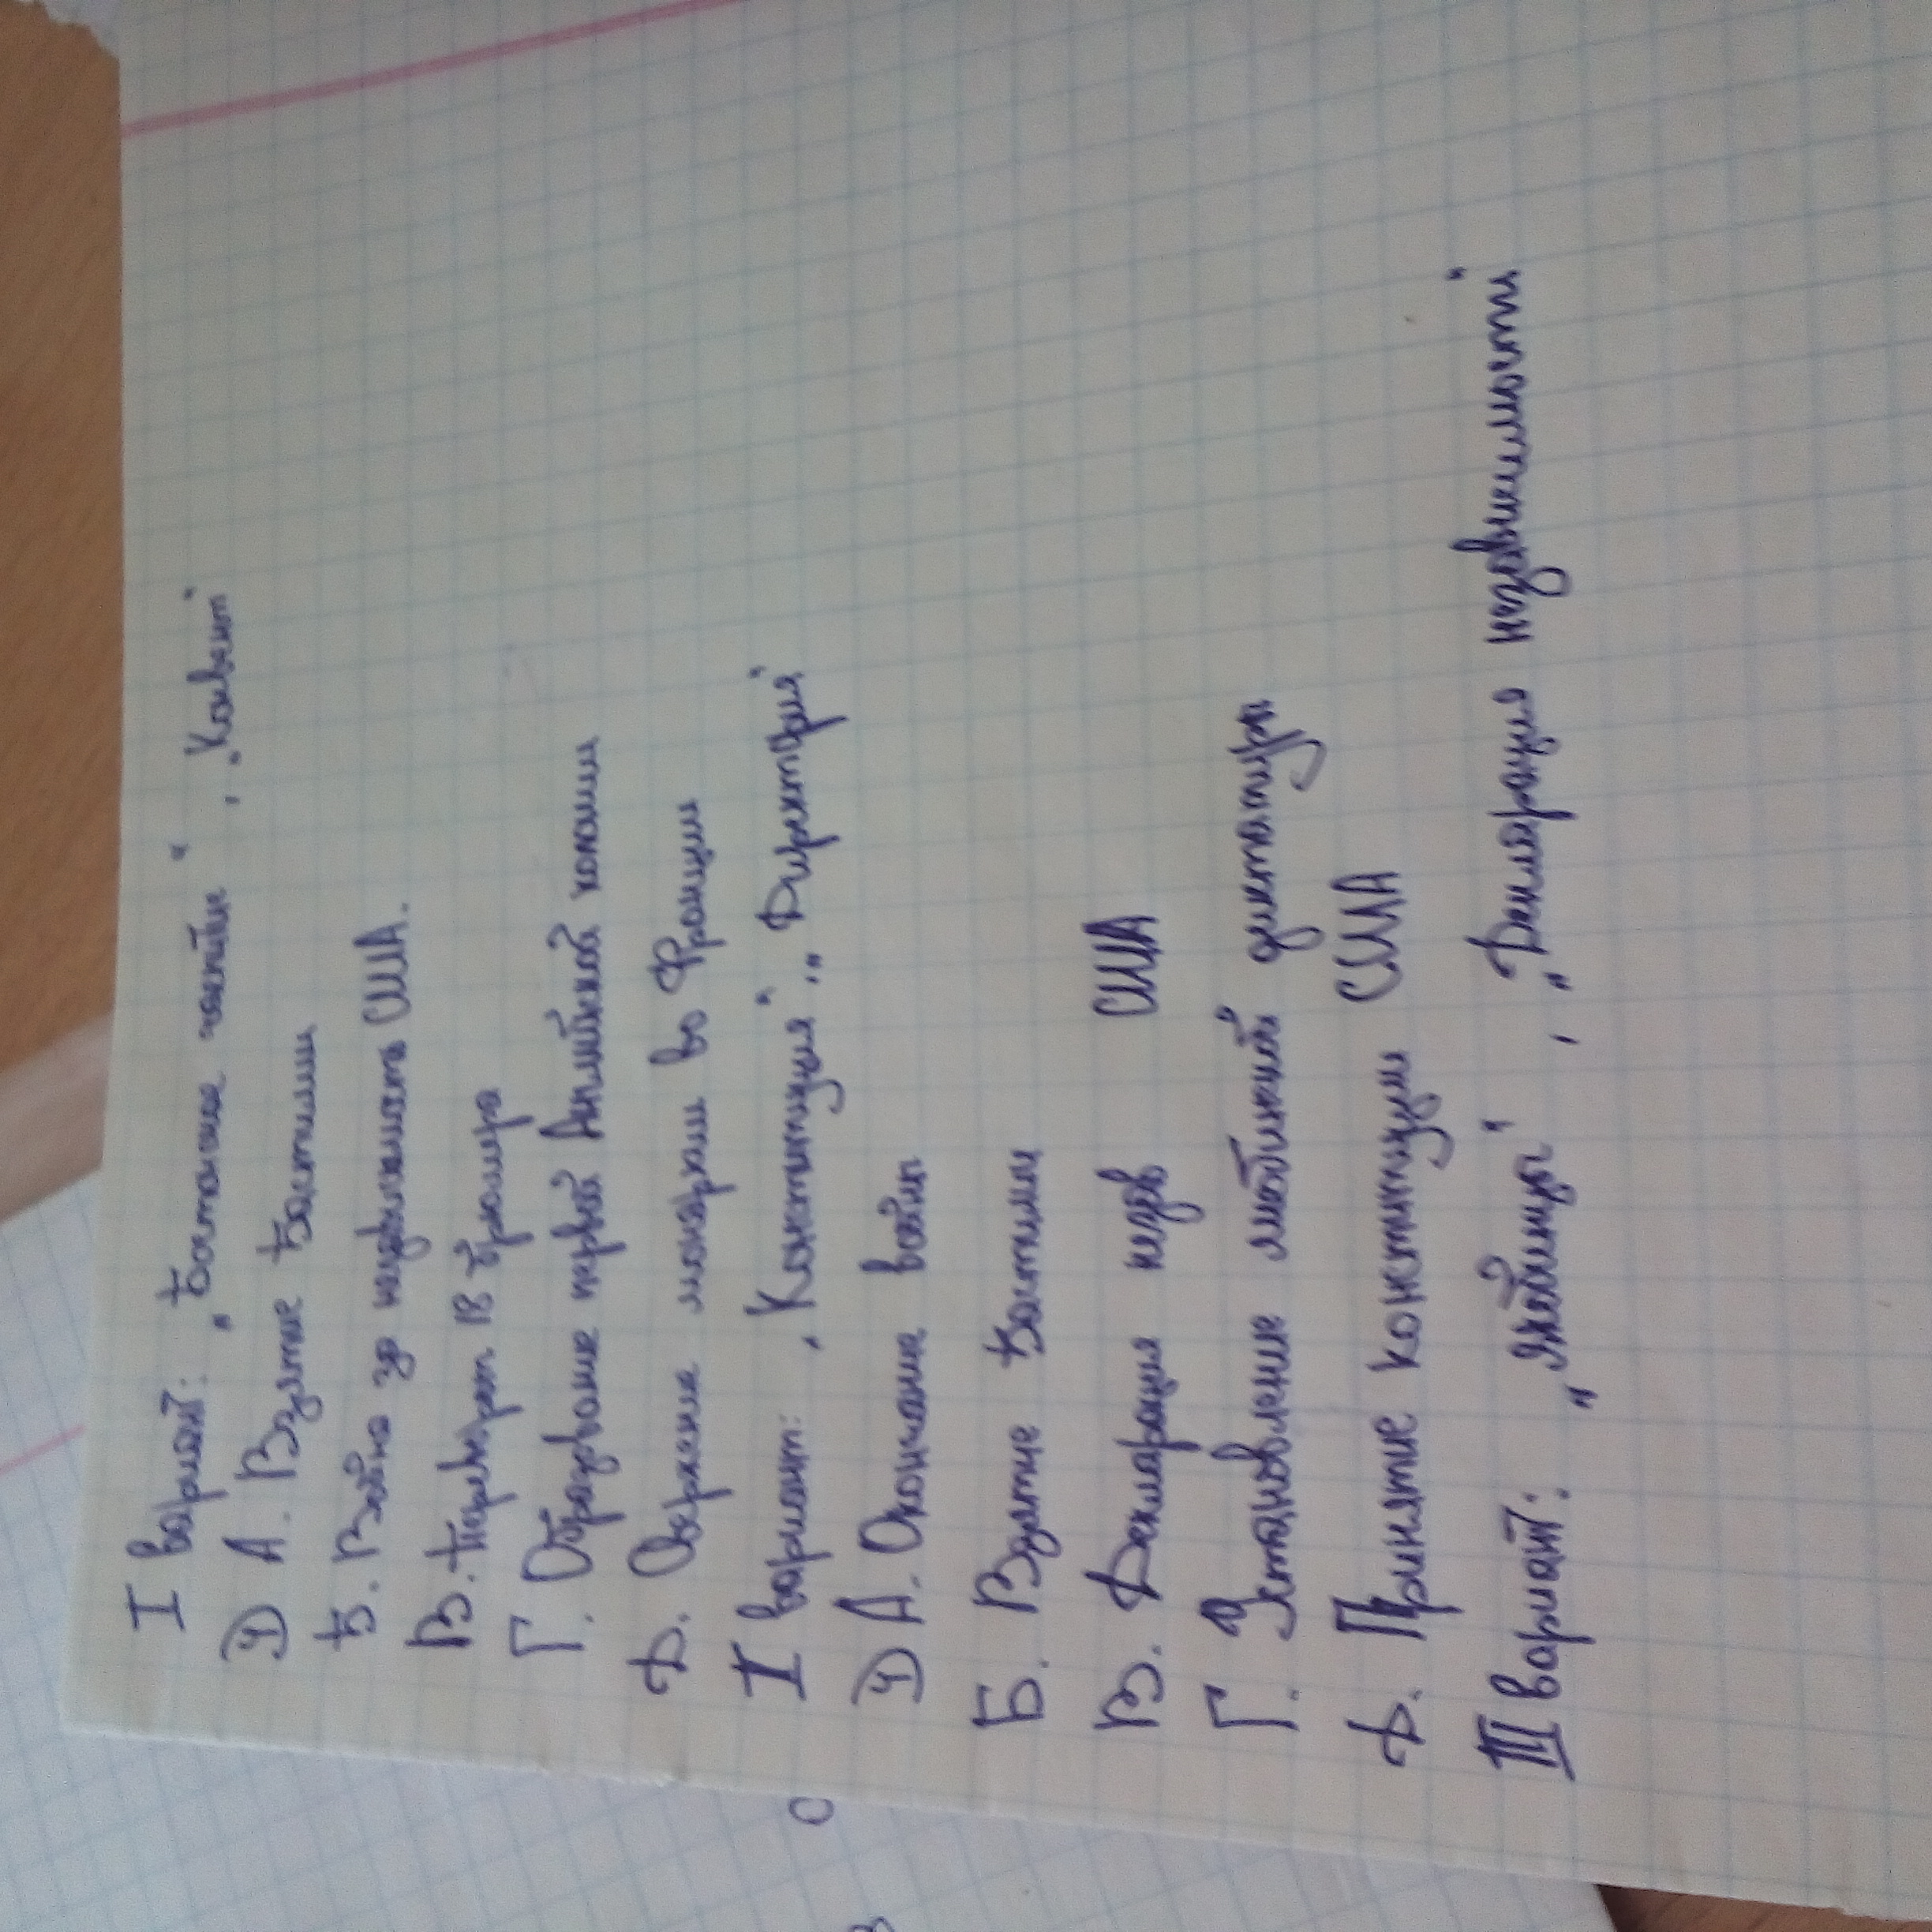 I вариант: „Бостонское чаепитие“, „Конвент“
1) А. Взятие Бастилии
Б. Война за независимость США.
В. Переворот 18 брюмера
Г. Образование первой Английской колонии
Д. Свержение монархии во Франции
I вариант: „Конституция“, „Директория“
1) А. Окончание войны
Б. Взятие Бастилии
В. Декларация незав США
Г. Установление якобинской диктатуры
Д. Принятие конституции США
III вариант: „якобинцы“, „Декларация независимости“